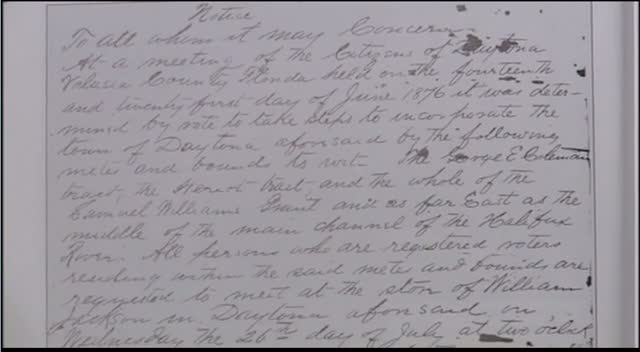 Notice
To all whom it may Concern
At a meeting of the Citizens of Daytona
Volusia County Florida held on the fourteenth
and twenty first day of June 1876 it was deter-
mined by vote to take steps to incorporate the
town of Daytona aforesaid by the following
metes and bounds to wit. The George E Coleman
tract, the Heriot tract, and the whole of the
Samuel Williams Grant and as far East as the
middle of the main channel of the Halifax
River. All persons who are registered voters
residing within the said metes and bounds are
requested to meet at the store of William
Jackson in Daytona aforesaid, on
Wednesday the 26th day of July at two o'clock